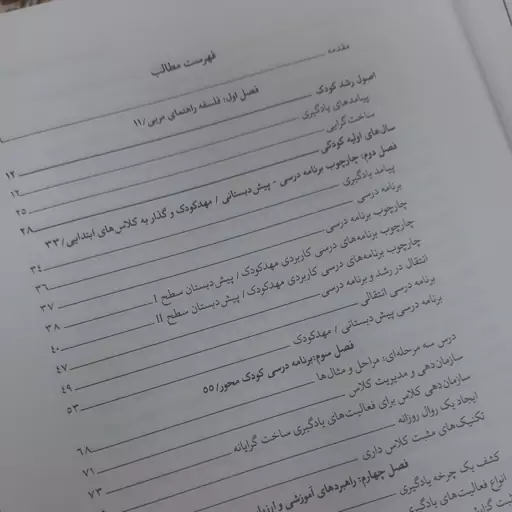 فهرست مطالب
مقدمه
فصل اول: فلسفه راهنمای مربی/۱۱
اصول رشد کودک ۱۲
پیامدهای یادگیری ۱۲
ساخت گرایی ۲۵
سال‌های اولیه کودکی ۲۸
فصل دوم: چارچوب برنامه درسی - پیش‌دبستانی / مهدکودک و گذار به کلاس‌های ابتدایی/۳۳
پیامد یادگیری ۳۴
برنامه درسی ۳۶
چارچوب برنامه درسی ۳۷
چارچوب برنامه‌های درسی کاربردی مهدکودک / پیش‌دبستان سطح I ۳۸
چارچوب برنامه‌های درسی کاربردی مهدکودک / پیش‌دبستان سطح II ۴۰
انتقال در رشد و برنامه درسی ۴۷
برنامه درسی انتقالی ۴۹
برنامه درسی پیش‌دبستانی / مهدکودک ۵۳
فصل سوم: برنامه درسی کودک محور/۵۵
درس سه مرحله‌ای؛ مراحل و مثال‌ها ۶۸
سازمان‌دهی و مدیریت کلاس ۷۱
سازمان‌دهی کلاس برای فعالیت‌های یادگیری ساخت گرایانه ۷۳
ایجاد یک روال روزانه
تکنیک‌های مثبت کلاس داری
فصل چهارم: راهبردهای آموزشی و
کشف یک چرخه یادگیری
انواع فعالیت‌های یادگیری